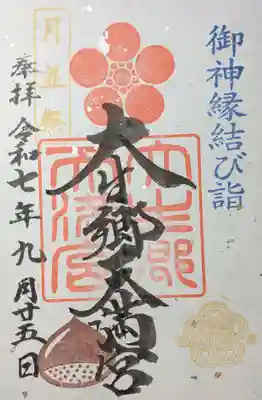 御神縁結び詣
月並祭
大生郷天満宮
大生郷天満宮
奉拝 令和七年九月廿五日